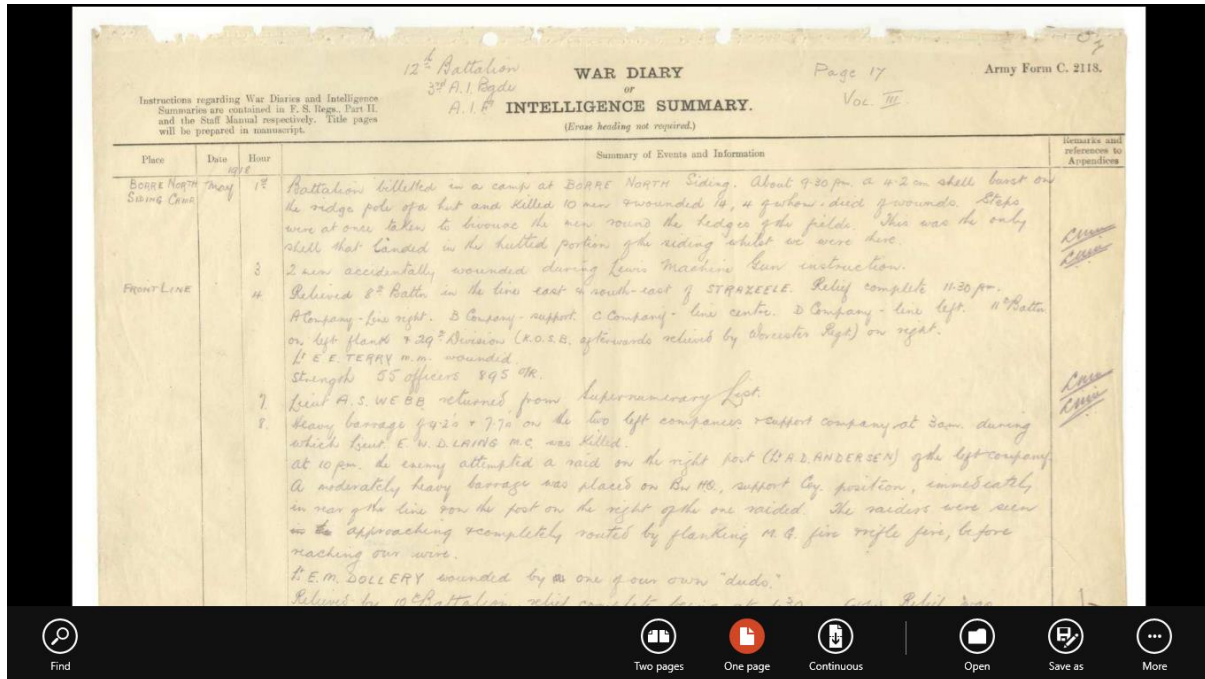 12th Battalion
3rd A.I. Bgde
A.I.F
WAR DIARY
or
INTELLIGENCE SUMMARY.
(Erase heading not required.)
Page 17
Vol. III
Army Form C. 2118.
Instructions regarding War Diaries and Intelligence
Summaries are contained in F. S. Regs., Part II.
and the Staff Manual respectively. Title pages
will be prepared in manuscript.
Place Date Hour Summary of Events and Information Remarks and references to Appendices
1918
BORRE NORTH SIDING CAMP May 1st Battalion billetted in a camp at BORRE NORTH Siding. About 9-30 pm. a 4-2 cm shell burst on
the ridge pole of a hut and killed 10 men & wounded 14, 4 of whom died of wounds. Steps
were at once taken to bivouac the men round the hedges of the fields. This was the only
shell that landed in the hutted portion of the siding whilst we were there.
3 2 men accidentally wounded during Lewis Machine Gun instruction.
FRONT LINE 4 Relieved 8th Battn in the line east & south-east of STRAZEELE. Relief complete 11-30 pm.
A Company - line right. B Company - support. C Company - line centre. D Company - line left. 11th Battn
on left flank & 29th Division (K.O.S.B. afterwards relieved by Worcester Regt.) on right.
Lt E E. TERRY M.M. wounded
Strength 55 officers 895 O/R.
7. Lieut A.S. WEBB returned from Supernumerary List.
8. Heavy barrage of 4.2's & 7.7's on the two left companies & support company at 3am. during
which Lieut. E. W. D. LAING M.C. was killed.
At 10 pm. the enemy attempted a raid on the right post (Lt A.D. ANDERSEN) of the left company.
A moderately heavy barrage was placed on Bn HQ, support Coy. position, immediately
in rear of the line & on the post on the right of the one raided. The raiders were seen
approaching & completely routed by flanking M.G. fire & rifle fire, before
reaching our wire.
Lt E.M. DOLLERY wounded by one of our own "duds."
Relieved by 10th Battalion, relief complete being at Relief was
Find
Two pages
One page
Continuous
Open
Save as
More